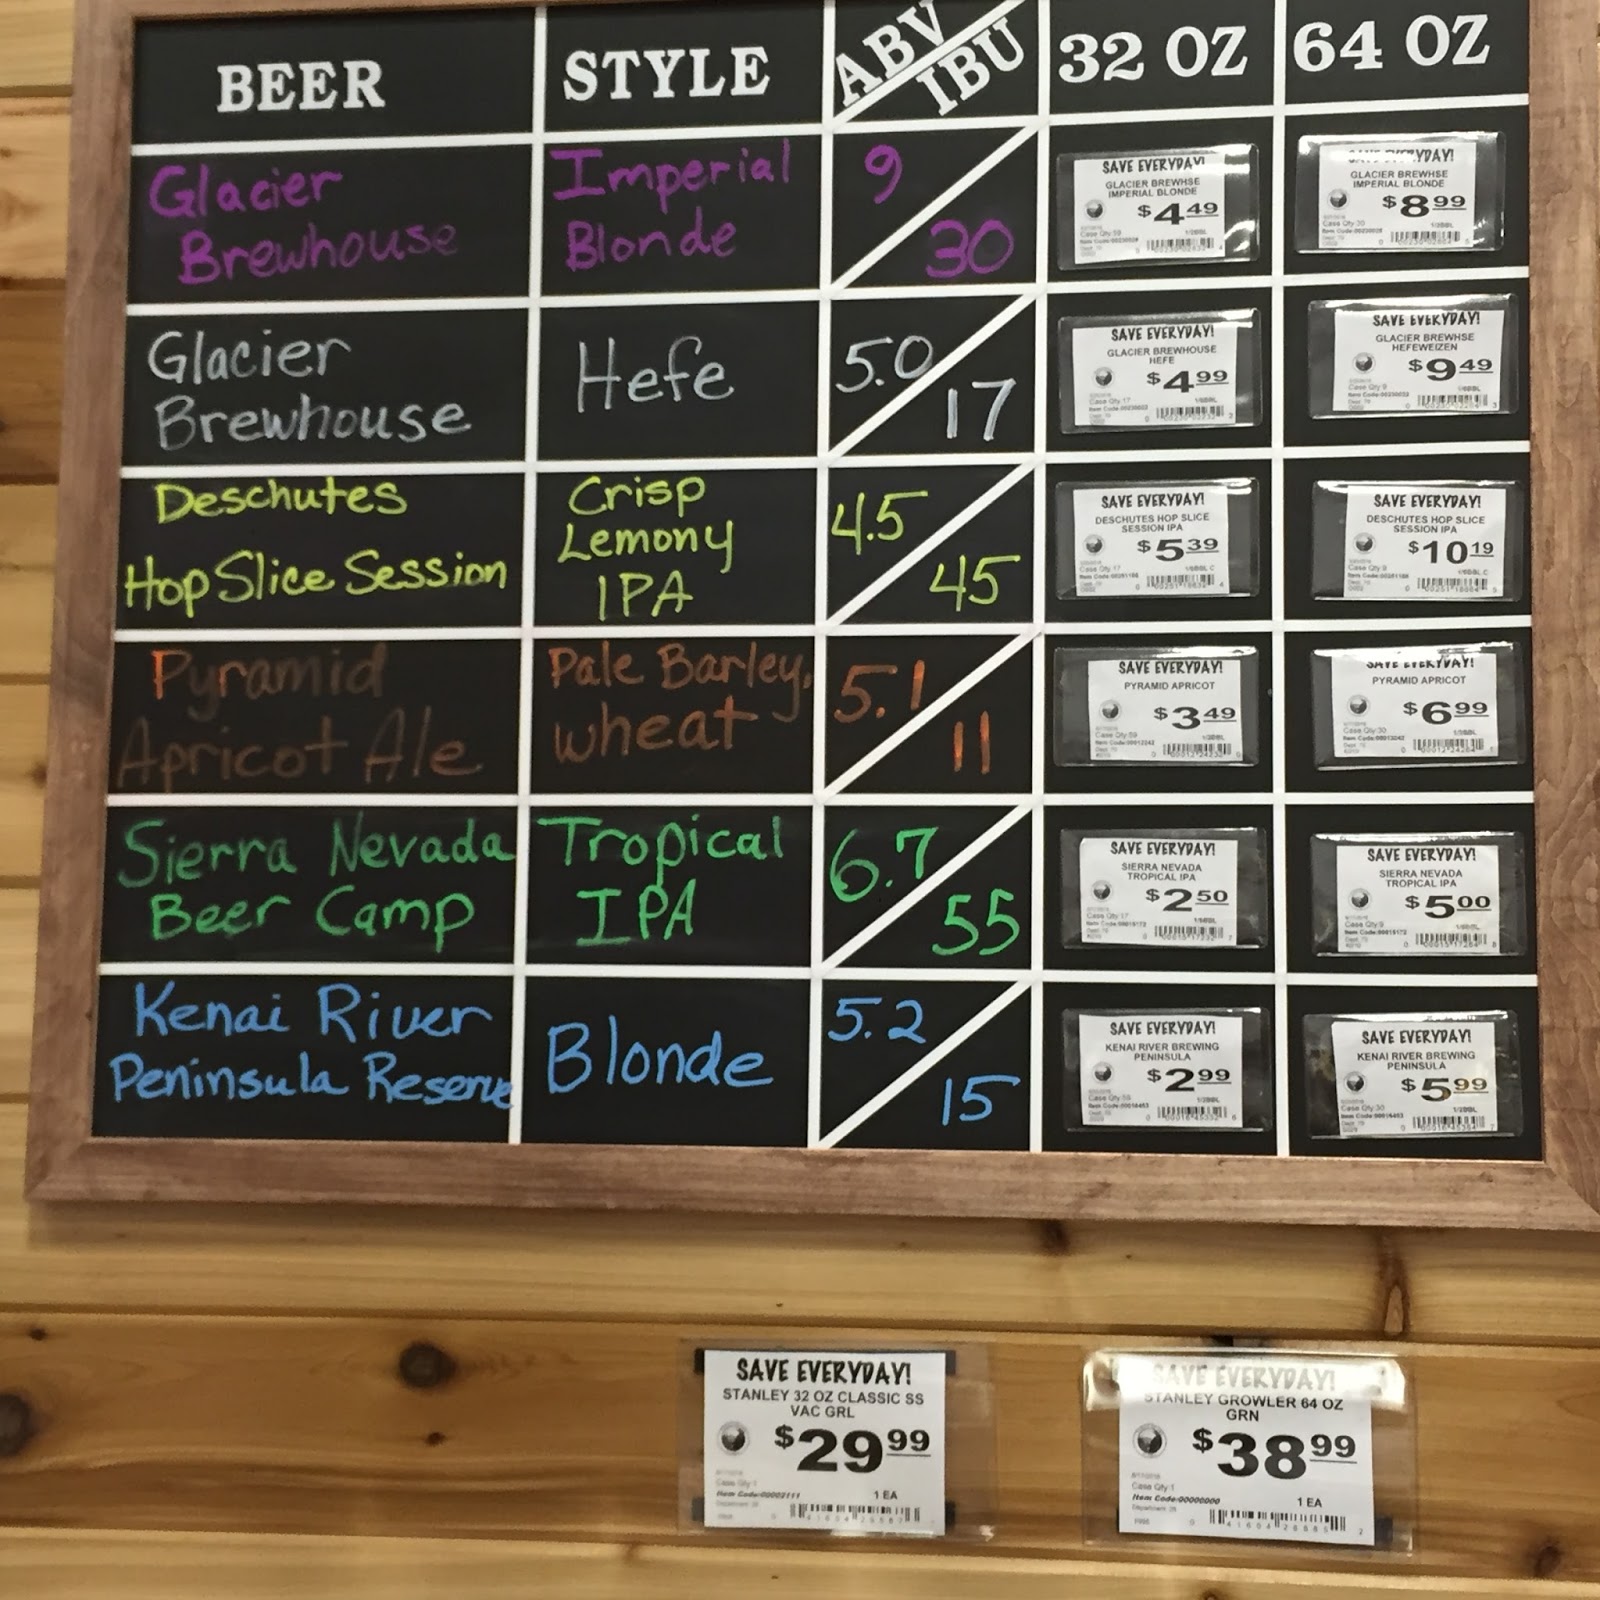 BEER STYLE ABV/IBU 32 OZ 64 OZ
Glacier
Brewhouse
Imperial
Blonde
9
30
SAVE EVERYDAY!
GLACIER BREWHSE
IMPERIAL BLONDE
$4.49
SAVE EVERYDAY!
GLACIER BREWHSE
IMPERIAL BLONDE
$8.99
Glacier
Brewhouse
Hefe
5.0
17
SAVE EVERYDAY!
GLACIER BREWHOUSE
HEFE
$4.99
SAVE EVERYDAY!
GLACIER BREWHSE
HEFEWEIZEN
$9.49
Deschutes
Hop Slice Session
Crisp
Lemony
IPA
4.5
45
SAVE EVERYDAY!
DESCHUTES HOP SLICE
SESSION IPA
$5.39
SAVE EVERYDAY!
DESCHUTES HOP SLICE
SESSION IPA
$10.19
Pyramid
Apricot Ale
Pale Barley,
wheat
5.1
11
SAVE EVERYDAY!
PYRAMID APRICOT
$3.49
SAVE EVERYDAY!
PYRAMID APRICOT
$6.99
Sierra Nevada
Beer Camp
Tropical
IPA
6.7
55
SAVE EVERYDAY!
SIERRA NEVADA
TROPICAL IPA
$2.50
SAVE EVERYDAY!
SIERRA NEVADA
TROPICAL IPA
$5.00
Kenai River
Peninsula Reserve
Blonde
5.2
15
SAVE EVERYDAY!
KENAI RIVER BREWING
PENINSULA
$2.99
SAVE EVERYDAY!
KENAI RIVER BREWING
PENINSULA
$5.99
SAVE EVERYDAY!
STANLEY 32 OZ CLASSIC SS
VAC GRL
$29.99
Case Qty:1
Item Code:00002111
1 EA
SAVE EVERYDAY!
STANLEY GROWLER 64 OZ
GRN
$38.99
Case Qty:1
Item Code:00000000
1 EA